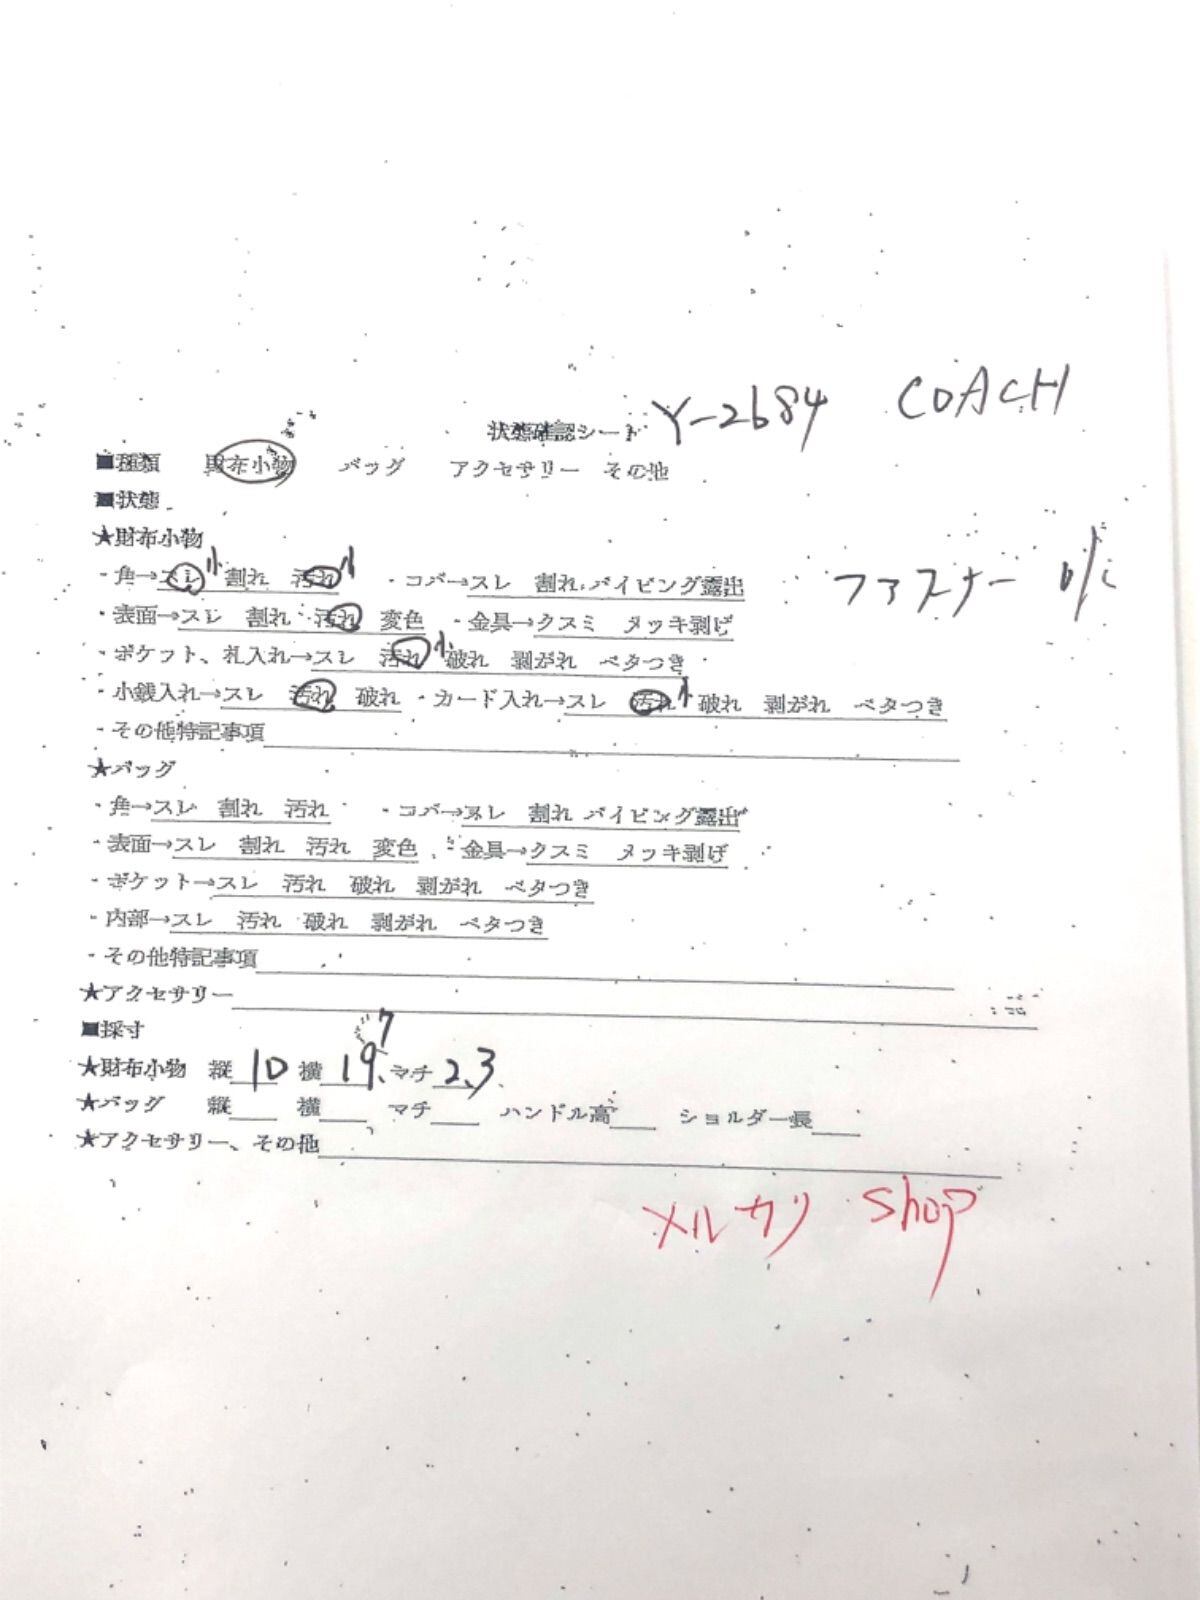 状態確認シート Y-2684 COACH
■種類 財布小物 バッグ アクセサリー その他
■状態
★財布小物
・角→スレ小 割れ 汚れ小 ・コバ→スレ 割れ パイピング露出 ファスナー
・表面→スレ 割れ 汚れ 変色 ・金具→クスミ メッキ剥げ
・ポケット、札入れ→スレ 汚れ小 破れ 剥がれ ベタつき
・小銭入れ→スレ 汚れ 破れ ・カード入れ→スレ 汚れ小 破れ 剥がれ ベタつき
・その他特記事項
★バッグ
・角→スレ 割れ 汚れ ・コバ→スレ 割れ パイピング露出
・表面→スレ 割れ 汚れ 変色 ・金具→クスミ メッキ剥げ
・ポケット→スレ 汚れ 破れ 剥がれ ベタつき
・内部→スレ 汚れ 破れ 剥がれ ベタつき
・その他特記事項
★アクセサリー
■採寸
★財布小物 縦 10 横 19.7 マチ 2.3
★バッグ 縦 横 マチ ハンドル高 ショルダー長
★アクセサリー、その他
メルカリ shop